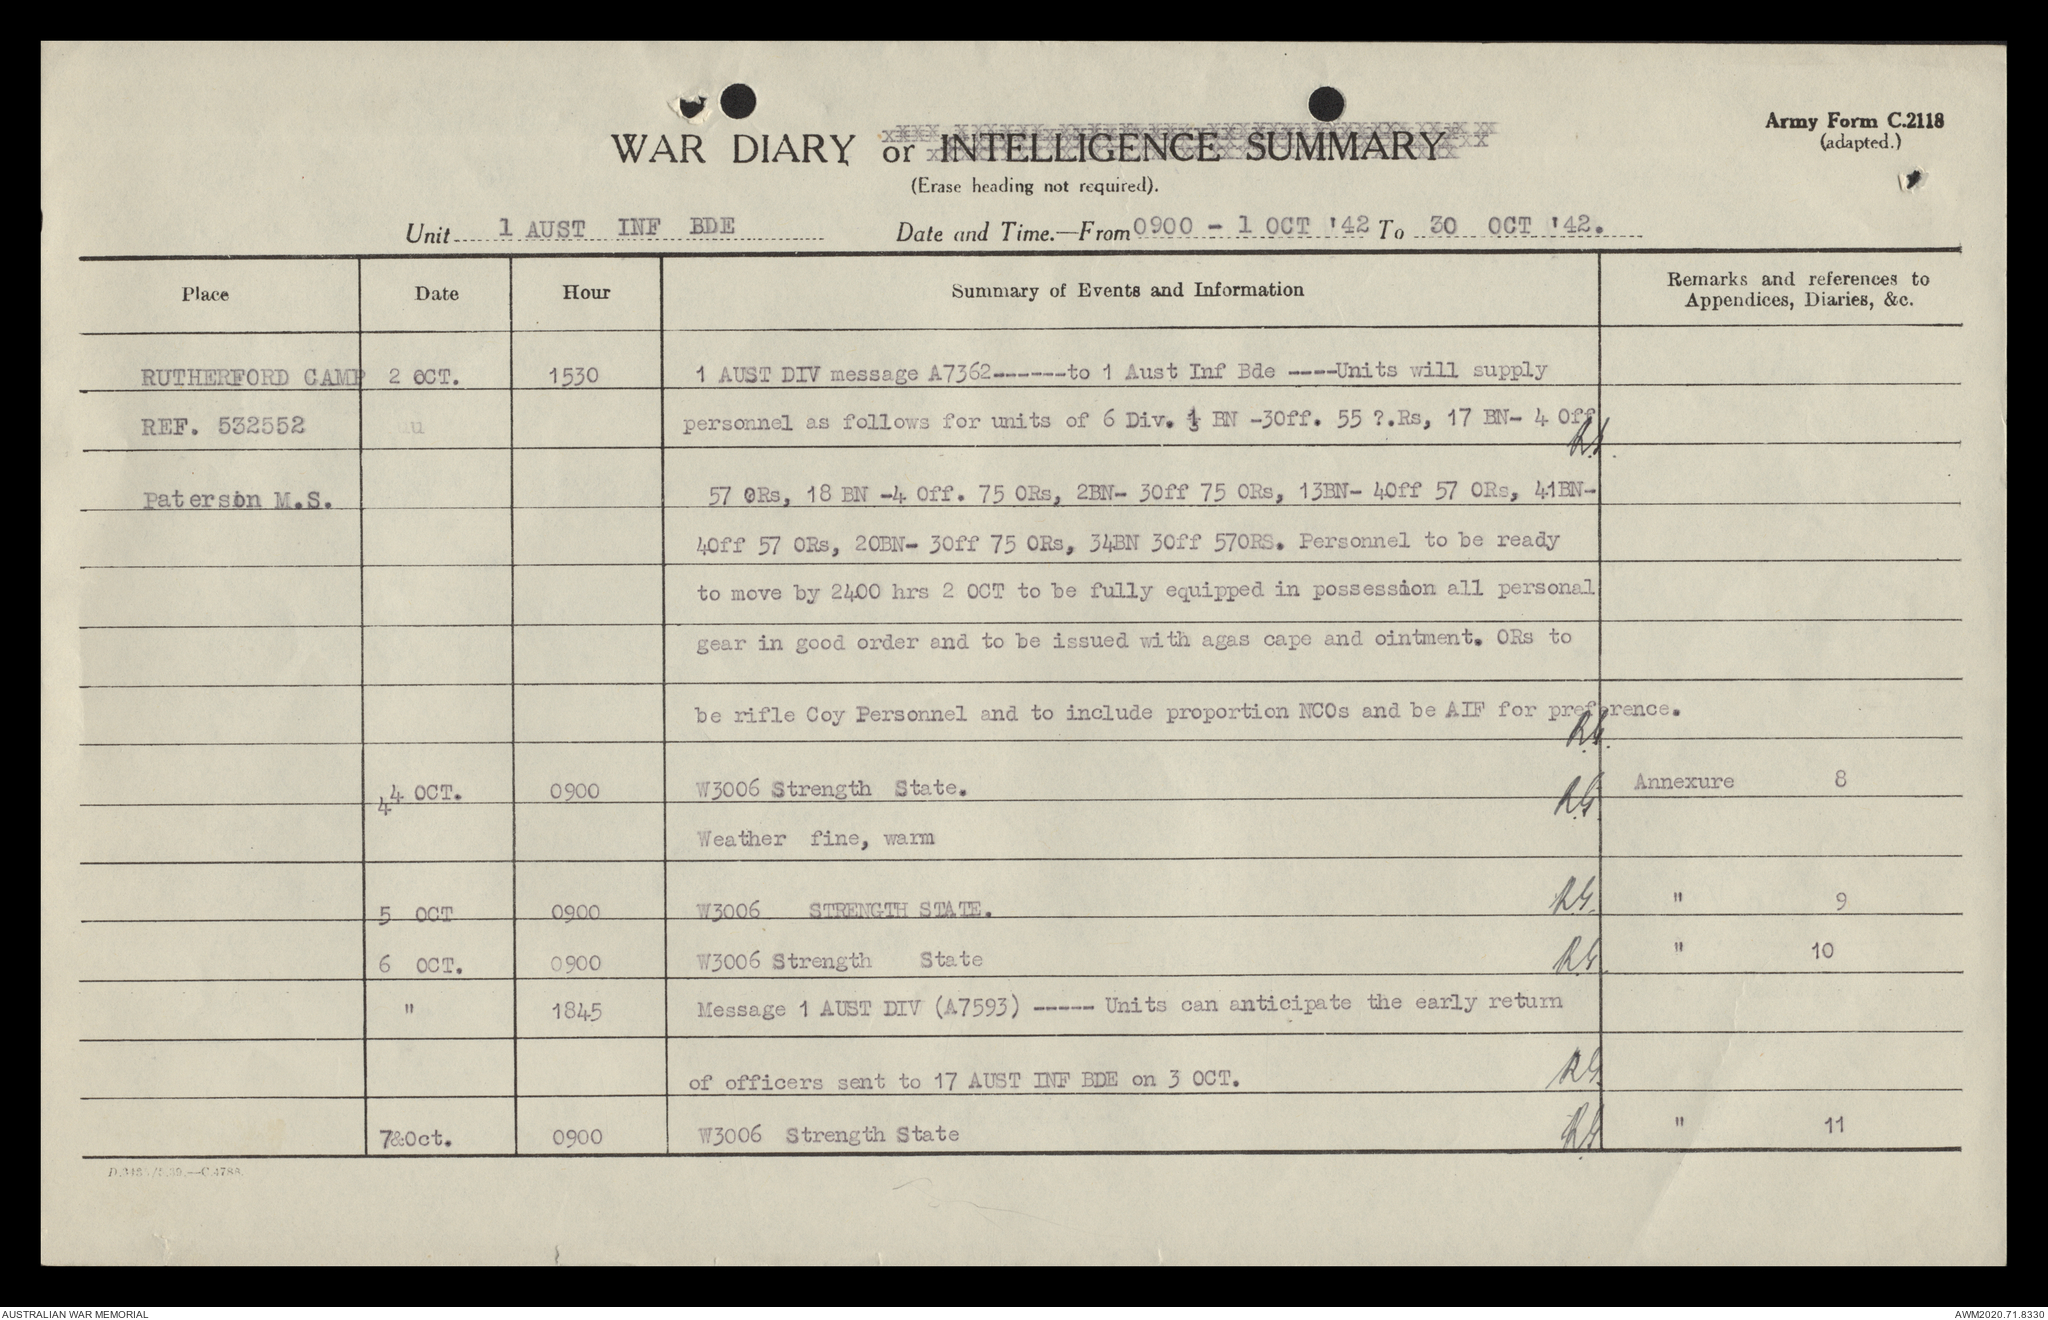 WAR DIARY or INTELLIGENCE SUMMARY
(Erase heading not required).
Army Form C.2118
(adapted.)
Unit 1 AUST INF BDE Date and Time.—From 0900 - 1 OCT '42 To 30 OCT '42.
Place Date Hour Summary of Events and Information Remarks and references to
Appendices, Diaries, &c.
RUTHERFORD CAMP 2 OCT. 1530 1 AUST DIV message A7362------to 1 Aust Inf Bde ----Units will supply
REF. 532552 personnel as follows for units of 6 Div. BN -3Off. 55 ?.Rs, 17 BN- 4 Off
R.G.
Paterson M.S. 57 ORs, 18 BN -4 Off. 75 ORs, 2BN- 3Off 75 ORs, 13BN- 4Off 57 ORs, 41BN-
4Off 57 ORs, 20BN- 3Off 75 ORs, 34BN 3Off 57ORS. Personnel to be ready
to move by 2400 hrs 2 OCT to be fully equipped in possession all personal
gear in good order and to be issued with agas cape and ointment. ORs to
be rifle Coy Personnel and to include proportion NCOs and be AIF for preference.
R.G.
4 4 OCT. 0900 W3006 Strength State. R.G. Annexure 8
Weather fine, warm
5 OCT 0900 W3006 STRENGTH STATE. R.G. " 9
6 OCT. 0900 W3006 Strength State R.G. " 10
" 1845 Message 1 AUST DIV (A7593) ----- Units can anticipate the early return
of officers sent to 17 AUST INF BDE on 3 OCT. R.G.
7&Oct. 0900 W3006 Strength State R.G. " 11
AUSTRALIAN WAR MEMORIAL AWM2020.71.8330